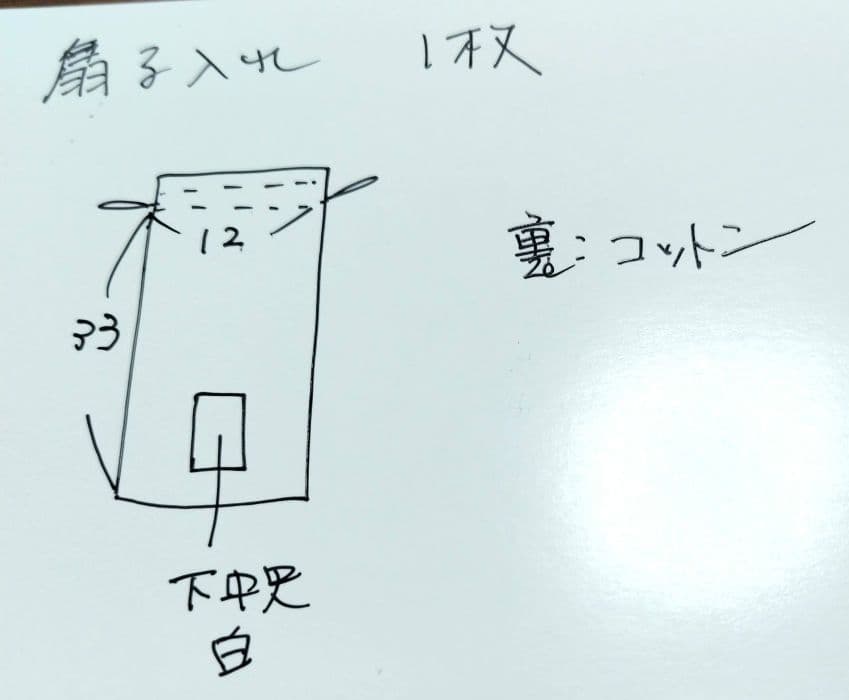 扇子入れ 1枚
12
裏:コットン
33
下中央
白